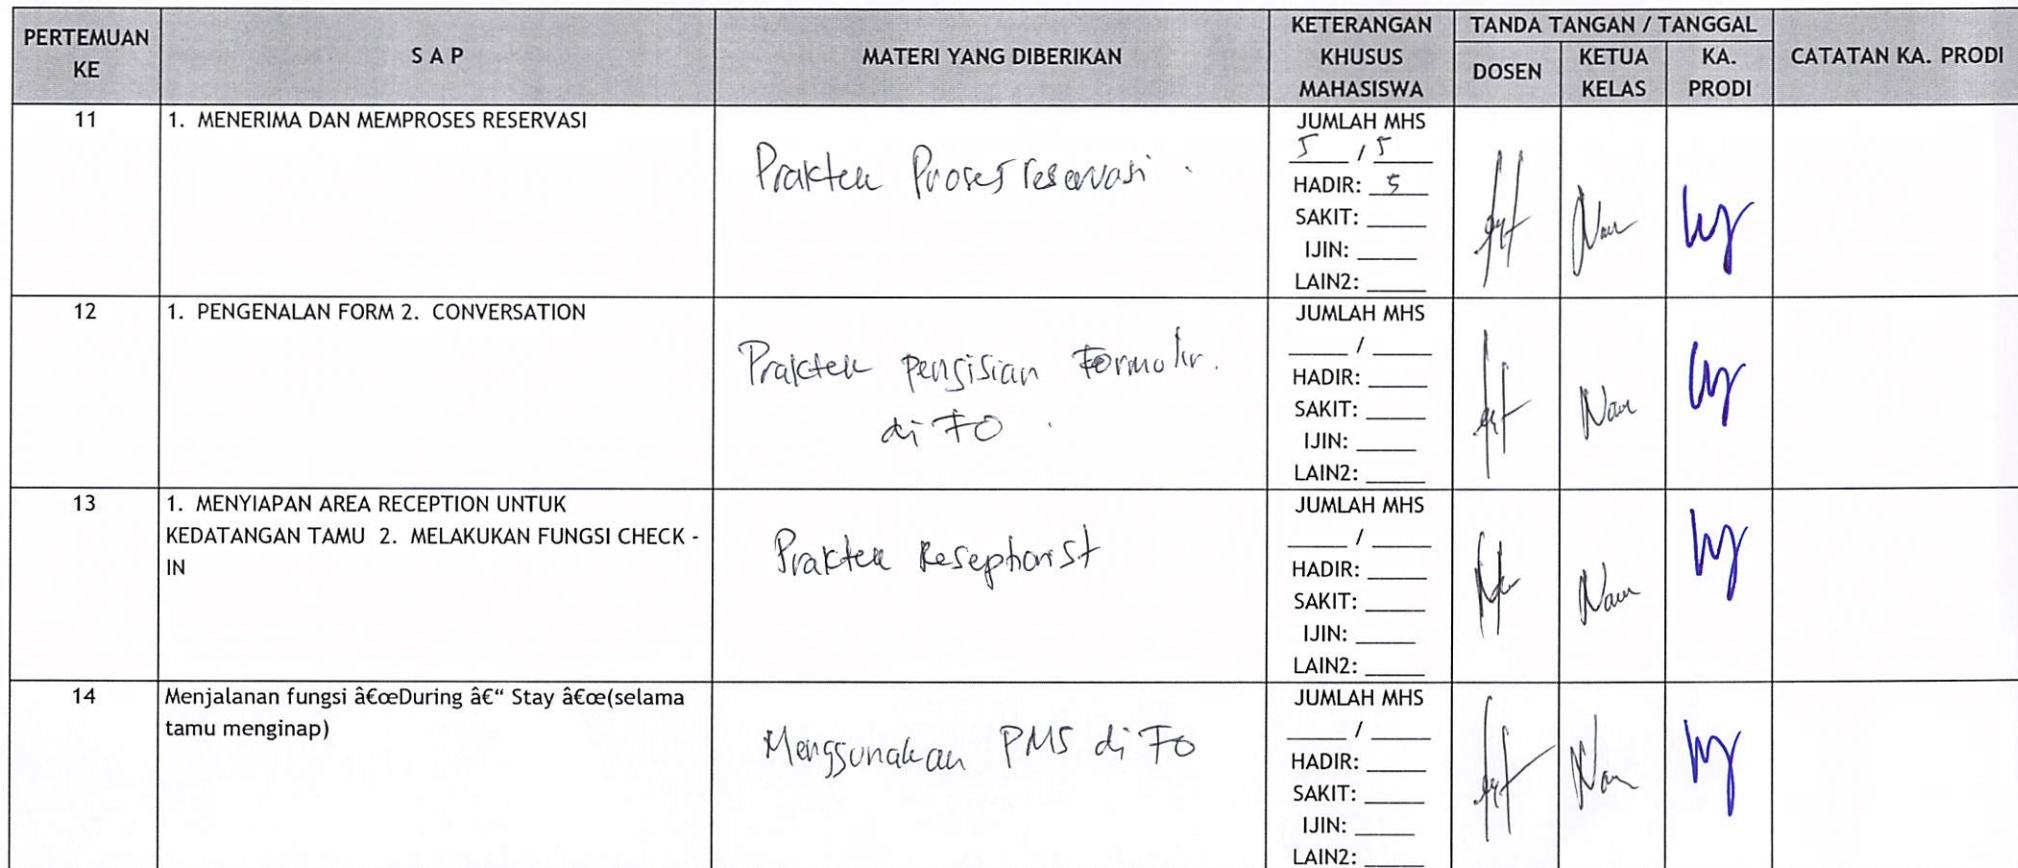 PERTEMUAN KE
S A P
MATERI YANG DIBERIKAN
KETERANGAN KHUSUS MAHASISWA
TANDA TANGAN / TANGGAL
DOSEN
KETUA KELAS
KA. PRODI
CATATAN KA. PRODI
11
1. MENERIMA DAN MEMPROSES RESERVASI
Praktek Proses reservasi .
JUMLAH MHS
5 / 5
HADIR: 5
SAKIT: _____
IJIN: _____
LAIN2: _____
12
1. PENGENALAN FORM 2. CONVERSATION
Praktek pengisian Formulir.
di FO .
JUMLAH MHS
_____ / _____
HADIR: _____
SAKIT: _____
IJIN: _____
LAIN2: _____
13
1. MENYIAPAN AREA RECEPTION UNTUK
KEDATANGAN TAMU 2. MELAKUKAN FUNGSI CHECK -
IN
Praktek Reseptionist
JUMLAH MHS
_____ / _____
HADIR: _____
SAKIT: _____
IJIN: _____
LAIN2: _____
14
Menjalanan fungsi â€œDuring â€“ Stay â€œ(selama
tamu menginap)
Menggunakan PMS di FO
JUMLAH MHS
_____ / _____
HADIR: _____
SAKIT: _____
IJIN: _____
LAIN2: _____